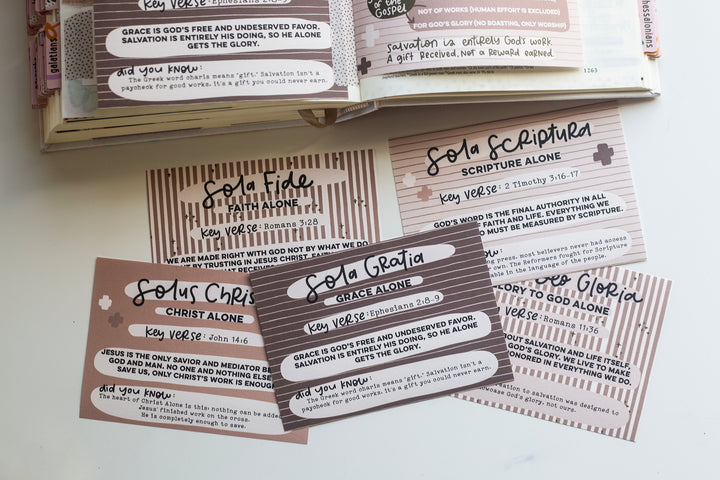 galatians
Key Verse: Ephesians 2:8-9
GRACE IS GOD'S FREE AND UNDESERVED FAVOR.
SALVATION IS ENTIRELY HIS DOING, SO HE ALONE
GETS THE GLORY.
did you know:
The Greek word charis means "gift." Salvation isn't a
paycheck for good works, it's a gift you could never earn.
of the
Gospel
NOT OF WORKS (HUMAN EFFORT IS EXCLUDED)
FOR GOD'S GLORY (NO BOASTING, ONLY WORSHIP)
Salvation is entirely God's work.
A gift received, not a reward earned.
1263
thessalonians
Sola Fide
FAITH ALONE
Key Verse: Romans 3:28
WE ARE MADE RIGHT WITH GOD NOT BY WHAT WE DO
BY TRUSTING IN JESUS CHRIST.
THAT RECEIVES
Sola Scriptura
SCRIPTURE ALONE
Key Verse: 2 Timothy 3:16-17
GOD'S WORD IS THE FINAL AUTHORITY IN ALL
FAITH AND LIFE. EVERYTHING WE
MUST BE MEASURED BY SCRIPTURE.
now:
press, most believers never had access
own. The Reformers fought for Scripture
able in the language of the people.
Solus Chris
CHRIST ALONE
Key Verse: John 14:6
JESUS IS THE ONLY SAVIOR AND MEDIATOR BE
GOD AND MAN. NO ONE AND NOTHING ELSE
SAVE US, ONLY CHRIST'S WORK IS ENOUGH
did you know:
The heart of Christ Alone is this: nothing can be adde
Jesus' finished work on the cross.
He is completely enough to save.
Sola Gratia
GRACE ALONE
Key Verse: Ephesians 2:8-9
GRACE IS GOD'S FREE AND UNDESERVED FAVOR.
SALVATION IS ENTIRELY HIS DOING, SO HE ALONE
GETS THE GLORY.
did you know:
The Greek word charis means "gift." Salvation isn't a
paycheck for good works, it's a gift you could never earn.
Deo Gloria
LORY TO GOD ALONE
Verse: Romans 11:36
BOUT SALVATION AND LIFE ITSELF,
GOD'S GLORY. WE LIVE TO MAKE
HONORED IN EVERYTHING WE DO.
creation to salvation was designed to
showcase God's glory, not ours.